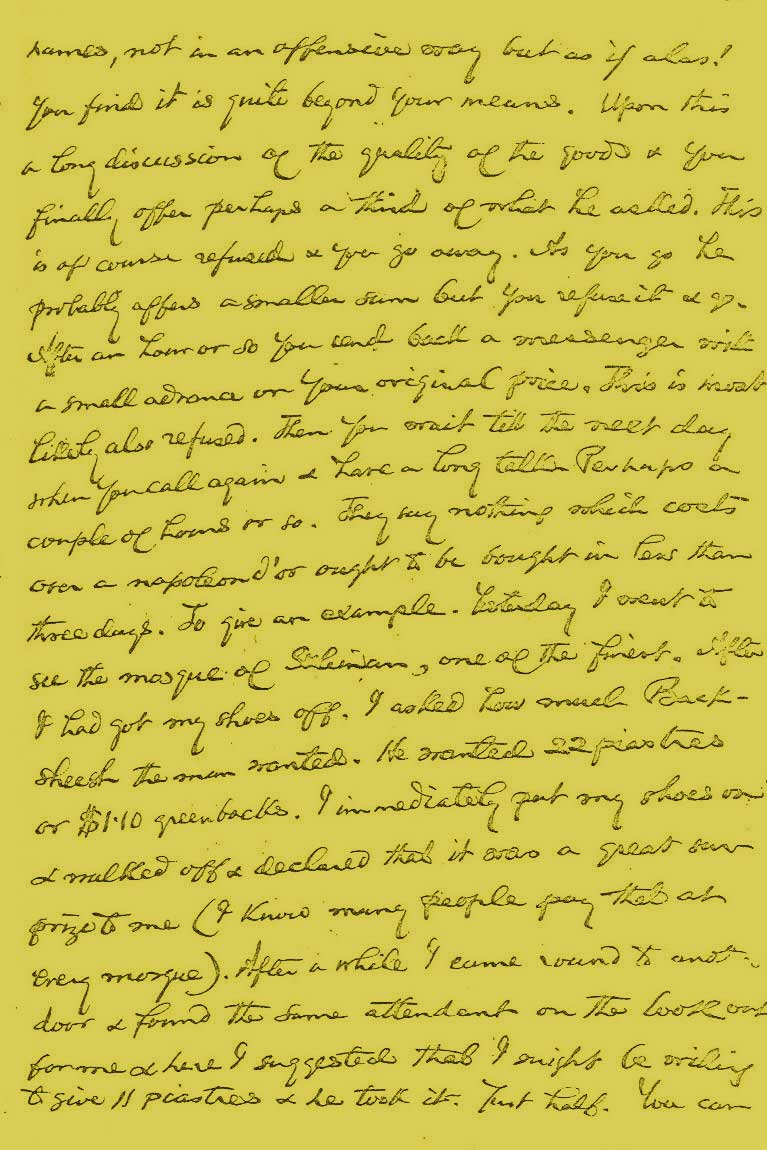 names, not in an offensive way but as if alas!
You find it is quite beyond your means. Upon this
a long discussion of the quality of the goods & you
finally offer perhaps a third of what he asked. This
is of course refused & you go away. As you go he
probably offers a smaller sum but you refuse it & go.
After an hour or so you send back a messenger with
a small advance on your original price. This is most
likely also refused. Then you wait till the next day
when you call again & have a long talk Perhaps a
couple of hours or so. They say nothing which costs
over a napoleon d'or ought to be bought in less than
three days. To give an example. Yesterday I went to
see the mosque of one of the finest. After
I had got my shoes off. I asked how much Back-
sheesh the man wanted. He wanted 22 piastres
or $1.10 greenbacks. I immediately put my shoes on
& walked off & declared that it was a great sur
prize to me (I know many people pay that at
every mosque). After a while I came round to anoth
door & found the same attendant on the look out
for me & here I suggested that I might be willing
to give 11 piastres & he took it. Just half. You can